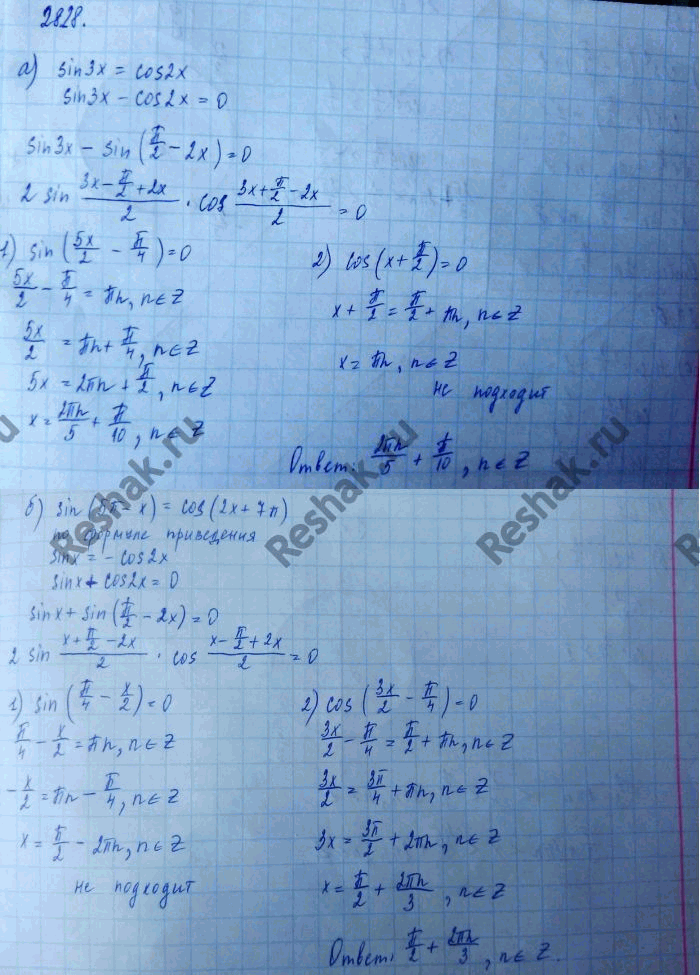 2828.
а) sin3x = cos2x
sin3x - cos2x = 0
sin3x - sin(π/2 - 2x) = 0
2 sin (3x - π/2 + 2x)/2 · cos (3x + π/2 - 2x)/2 = 0
1) sin(5x/2 - π/4) = 0
5x/2 - π/4 = πn, n∈Z
5x/2 = πn + π/4, n∈Z
5x = 2πn + π/2, n∈Z
x = 2πn/5 + π/10, n∈Z
2) cos(x + π/2) = 0
x + π/2 = π/2 + πn, n∈Z
x = πn, n∈Z
не подходит
Ответ: 2πn/5 + π/10, n∈Z
б) sin(5π - x) = cos(2x + 7π)
по формуле приведения
sinx = - cos2x
sinx + cos2x = 0
sinx + sin(π/2 - 2x) = 0
2 sin (x + π/2 - 2x)/2 · cos (x - π/2 + 2x)/2 = 0
1) sin(π/4 - x/2) = 0
π/4 - x/2 = πn, n∈Z
-x/2 = πn - π/4, n∈Z
x = π/2 - 2πn, n∈Z
не подходит
2) cos(3x/2 - π/4) = 0
3x/2 - π/4 = π/2 + πn, n∈Z
3x/2 = 3π/4 + πn, n∈Z
3x = 3π/2 + 2πn, n∈Z
x = π/2 + 2πn/3, n∈Z
Ответ: π/2 + 2πn/3, n∈Z.
Reshak.ru
Reshak.ru
Reshak.ru